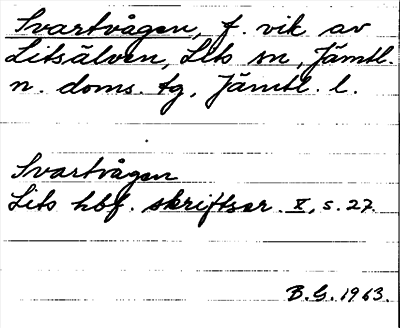 Svartvågen, f. vik av
Litsälven, Lits sn, Jämtl.
n. doms. tg, Jämtl. l.
Svartvågen
Lits hbf. skriftser. X, s. 27.
B.G. 1963.